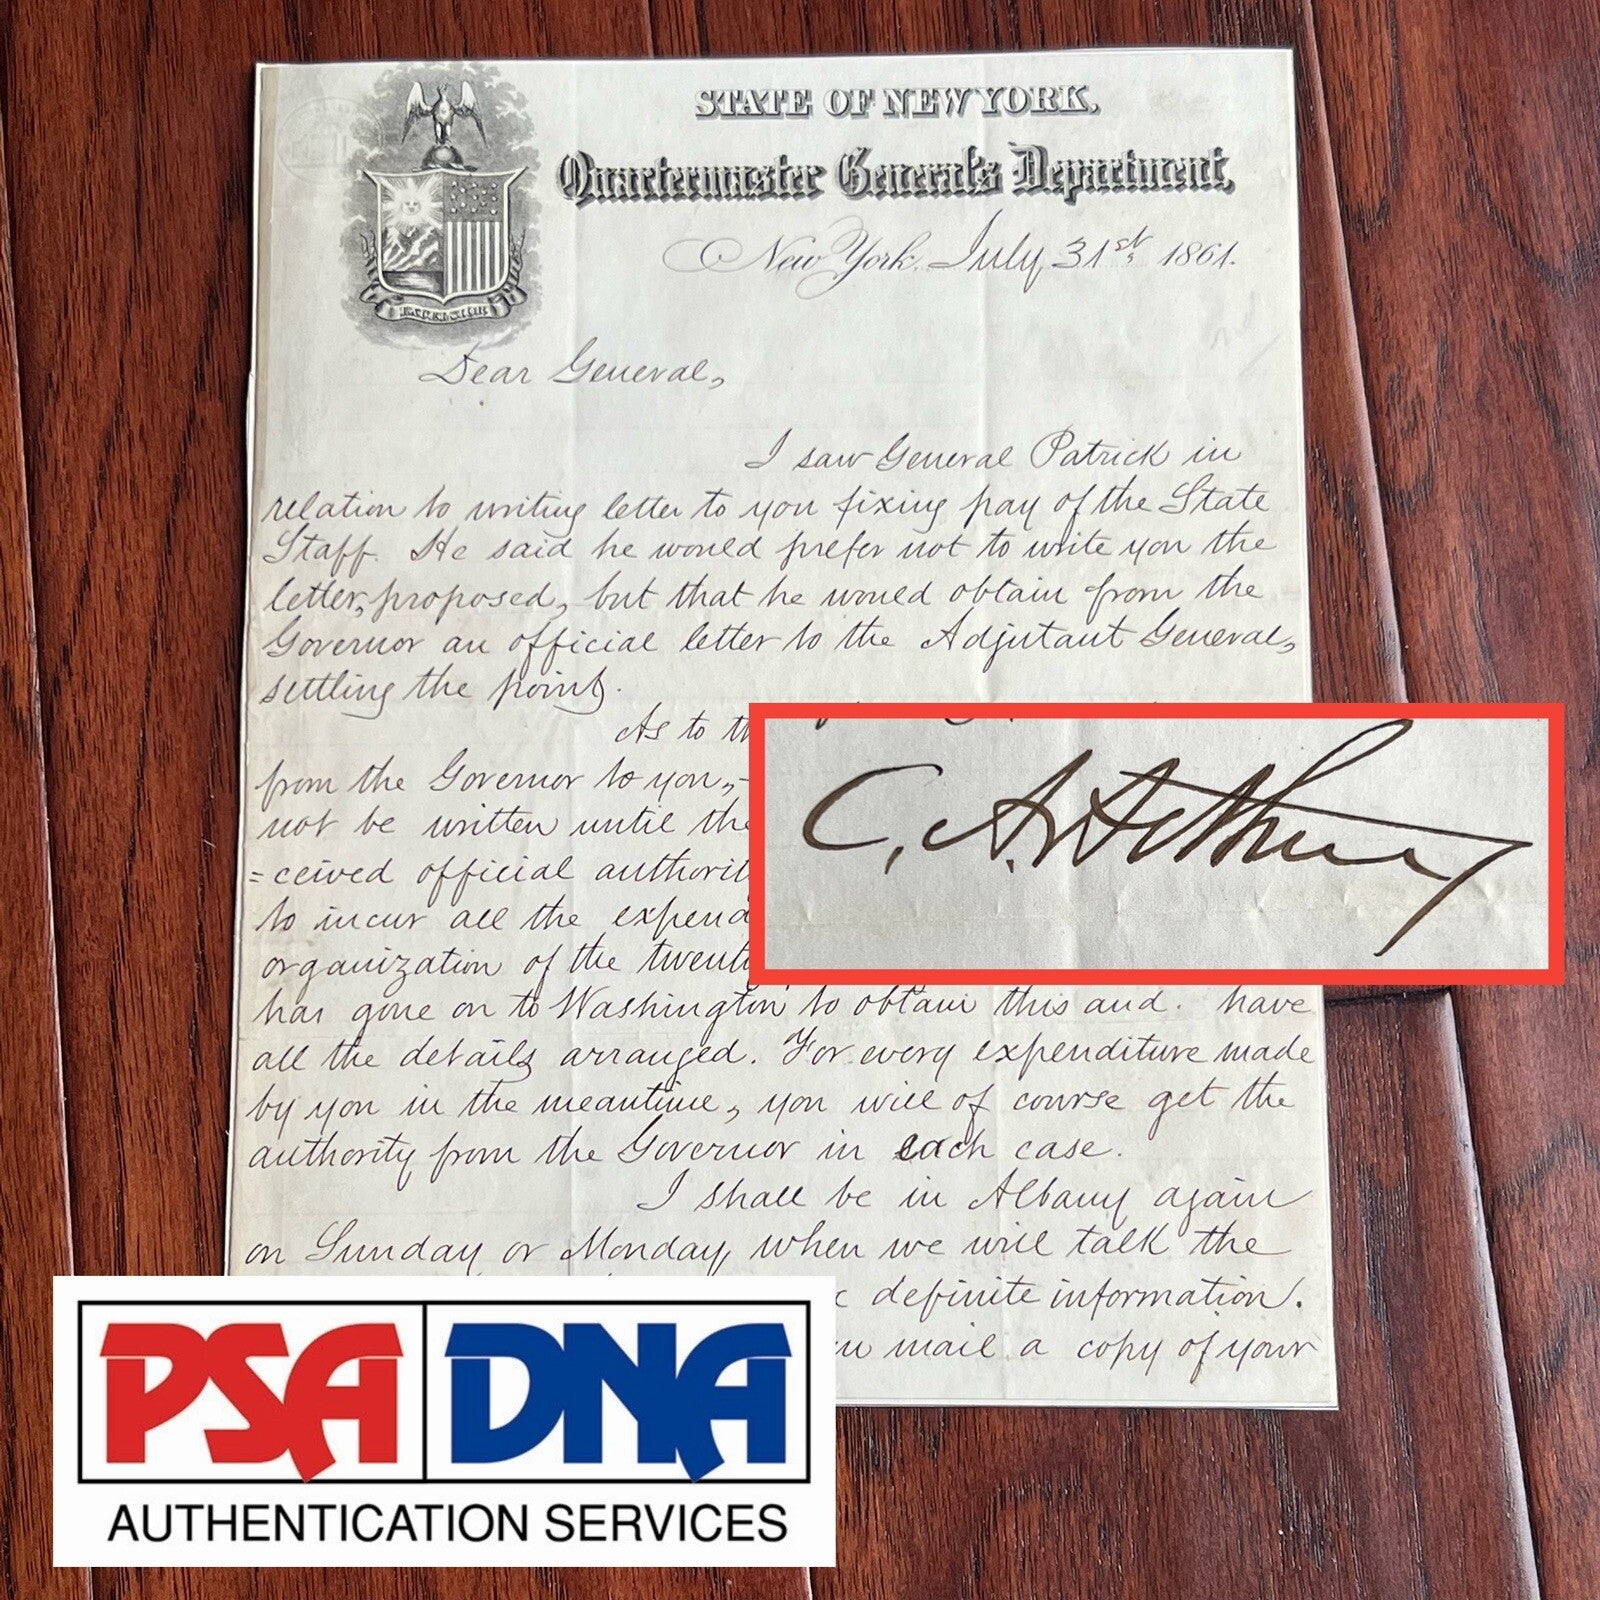 STATE OF NEW YORK.
Quartermaster General's Department,
New York, July 31st, 1861.
EXCELSIOR
Dear General,
I saw General Patrick in
relation to writing letter to you fixing pay of the State
Staff. He said he would prefer not to write you the
letter, proposed, but that he would obtain from the
Governor an official letter to the Adjutant General,
settling the point.
As to th
from the Governor to you,-
not be written until the
=ceived official authorit
to incur all the expend
organization of the twenty
has gone on to Washington, to obtain this and have
all the details arranged. For every expenditure made
by you in the meantime, you will of course get the
authority from the Governor in each case.
I shall be in Albany again
on Sunday or Monday, when we will talk the
definite information.
mail a copy of your
C. A. Arthur
PSA DNA
AUTHENTICATION SERVICES